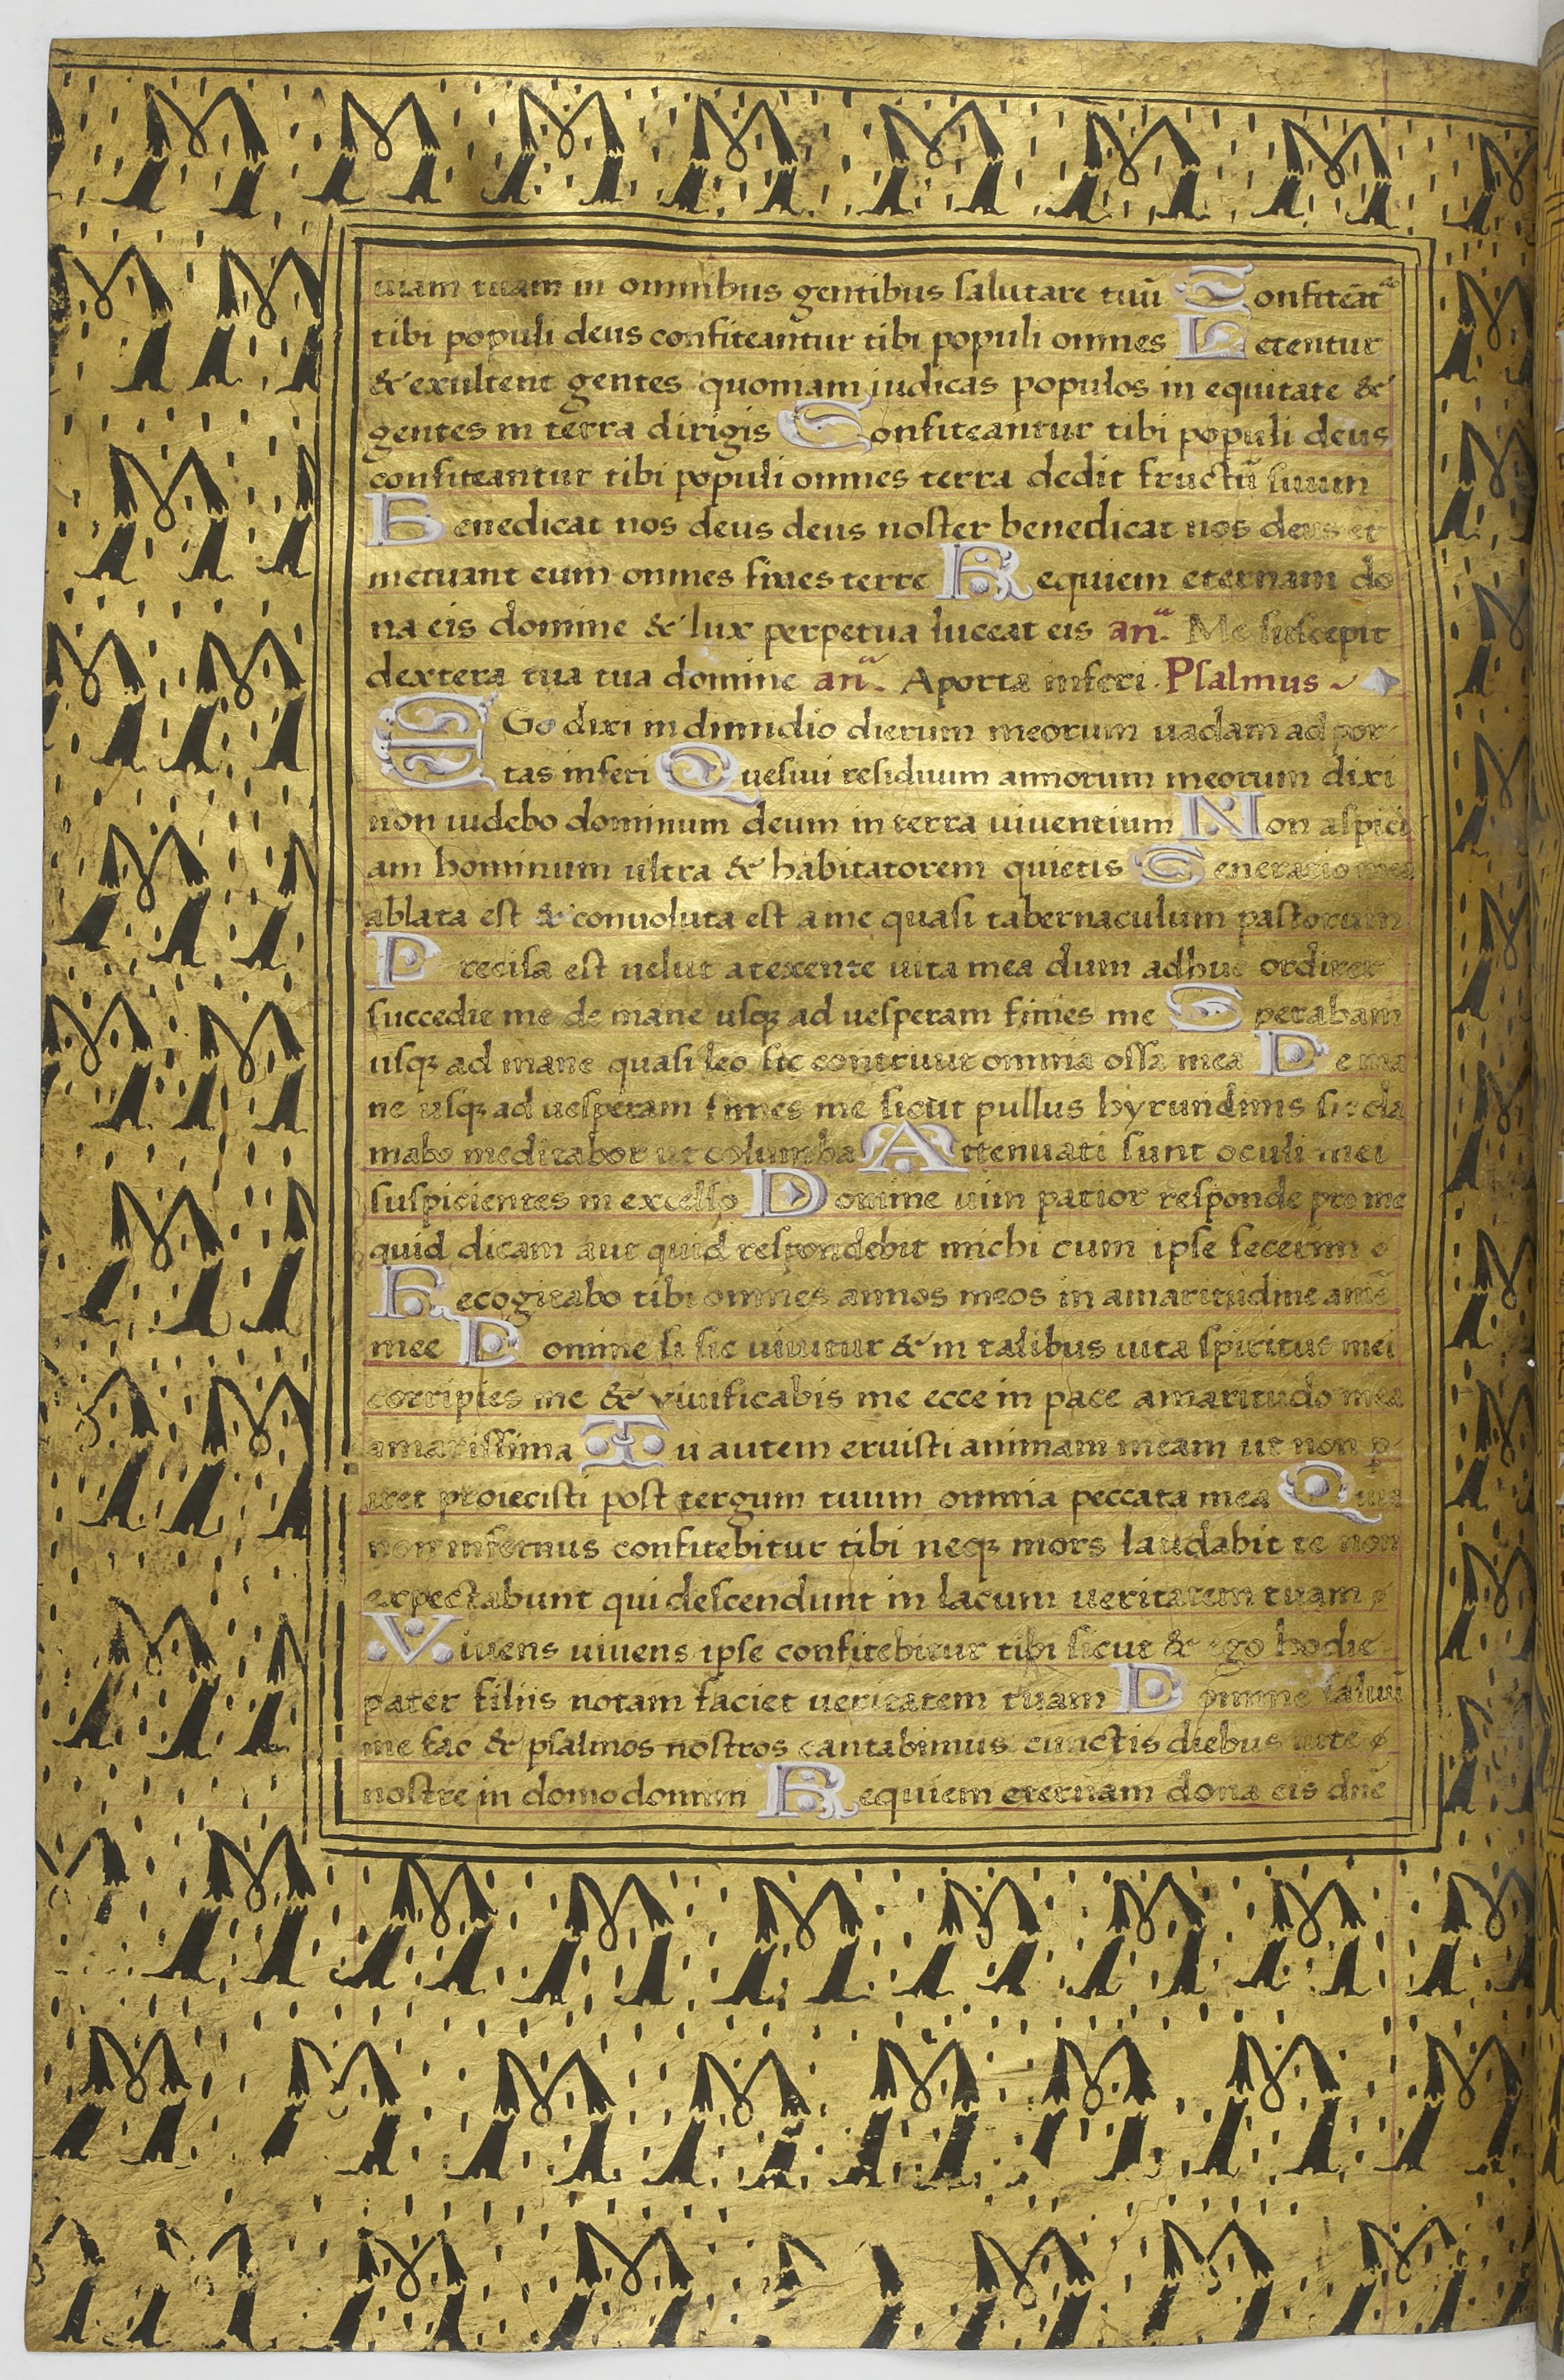 uiam tuam in omnibus gentibus salutare tuũ Confiteãt᷑
tibi populi deus confiteantur tibi populi omnes Letentur
& exultent gentes quoniam iudicas populos in equitate &
gentes in terra dirigis Confiteantur tibi populi deus
confiteantur tibi populi omnes terra dedit fructũ suum
Benedicat nos deus deus noster benedicat nos deus et
metuant eum omnes fines terre Requiem eternam do
na eis domine & lux perpetua luceat eis an.ª Me suscepit
dextera tua tua domine an.ª Aporta inferi. Psalmus
EGo dixi in dimidio dierum meorum uadam ad por
tas inferi Quesiui residuum annorum meorum dixi
non uidebo dominum deum in terra uiuentium Non aspici
am hominum ultra & habitatorem quietis Generatio mea
ablata est & conuoluta est a me quasi tabernaculum pastorum
Precisa est uelut atexente uita mea dum adhuc ordirer
succedit me de mane usqꝫ ad uesperam finies me Sperabam
usqꝫ ad mane quasi leo sic contriuit omnia ossa mea De ma
ne usqꝫ ad uesperam finies me sicut pullus hyrundinis sic cla
mabo meditabor ut columba Attenuati sunt oculi mei
suspicientes in excelso Domine uim patior responde pro me
quid dicam aut quid respondebit michi cum ipse fecerim
Recogitabo tibi omnes annos meos in amaritudine anie
mee Domine si sic uiuitur & in talibus uita spiritus mei
corripies me & viuificabis me ecce in pace amaritudo mea
amarissima Tu autem eruisti animam meam ut non ꝑ
iret proiecisti post tergum tuum omnia peccata mea Quia
non infernus confitebitur tibi neqꝫ mors laudabit te non
expectabunt qui descendunt in lacum ueritatem tuam
Viuens uiuens ipse confitebitur tibi sicut & ego hodie
pater filiis notam faciet ueritatem tuam Domine saluũ
me fac & psalmos nostros cantabimus cunctis diebus uite
nostre in domo domini Requiem eternam dona eis dñe